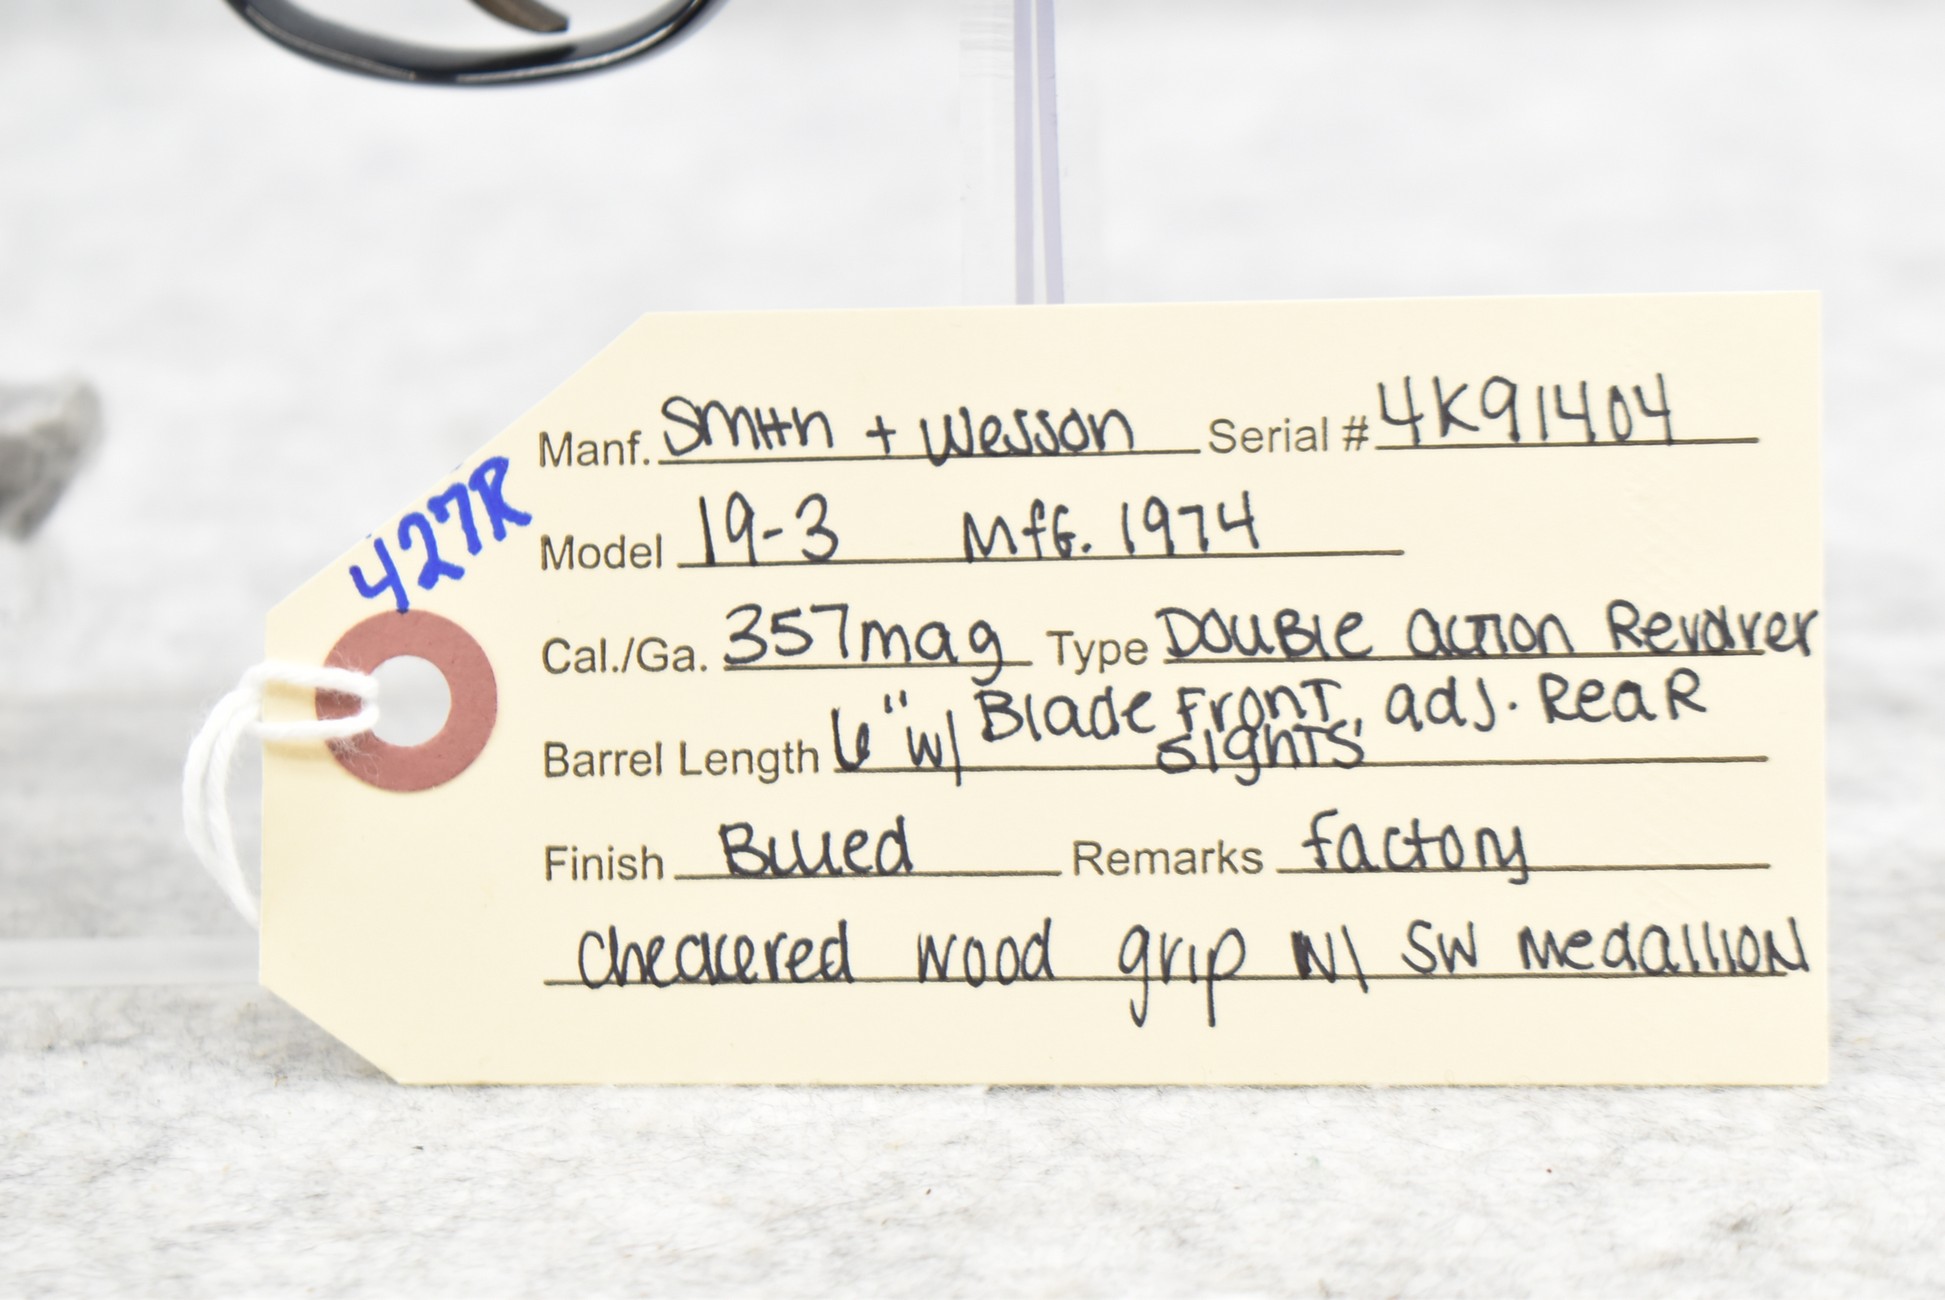 427R
Manf. Smith + Wesson Serial # 4K91404
Model 19-3 Mfg. 1974
Cal./Ga. 357mag Type Double Action Revolver
Barrel Length 6" w/ Blade Front, adj. Rear
sights
Finish Blued Remarks factory
checkered wood grip w/ SW Medallion